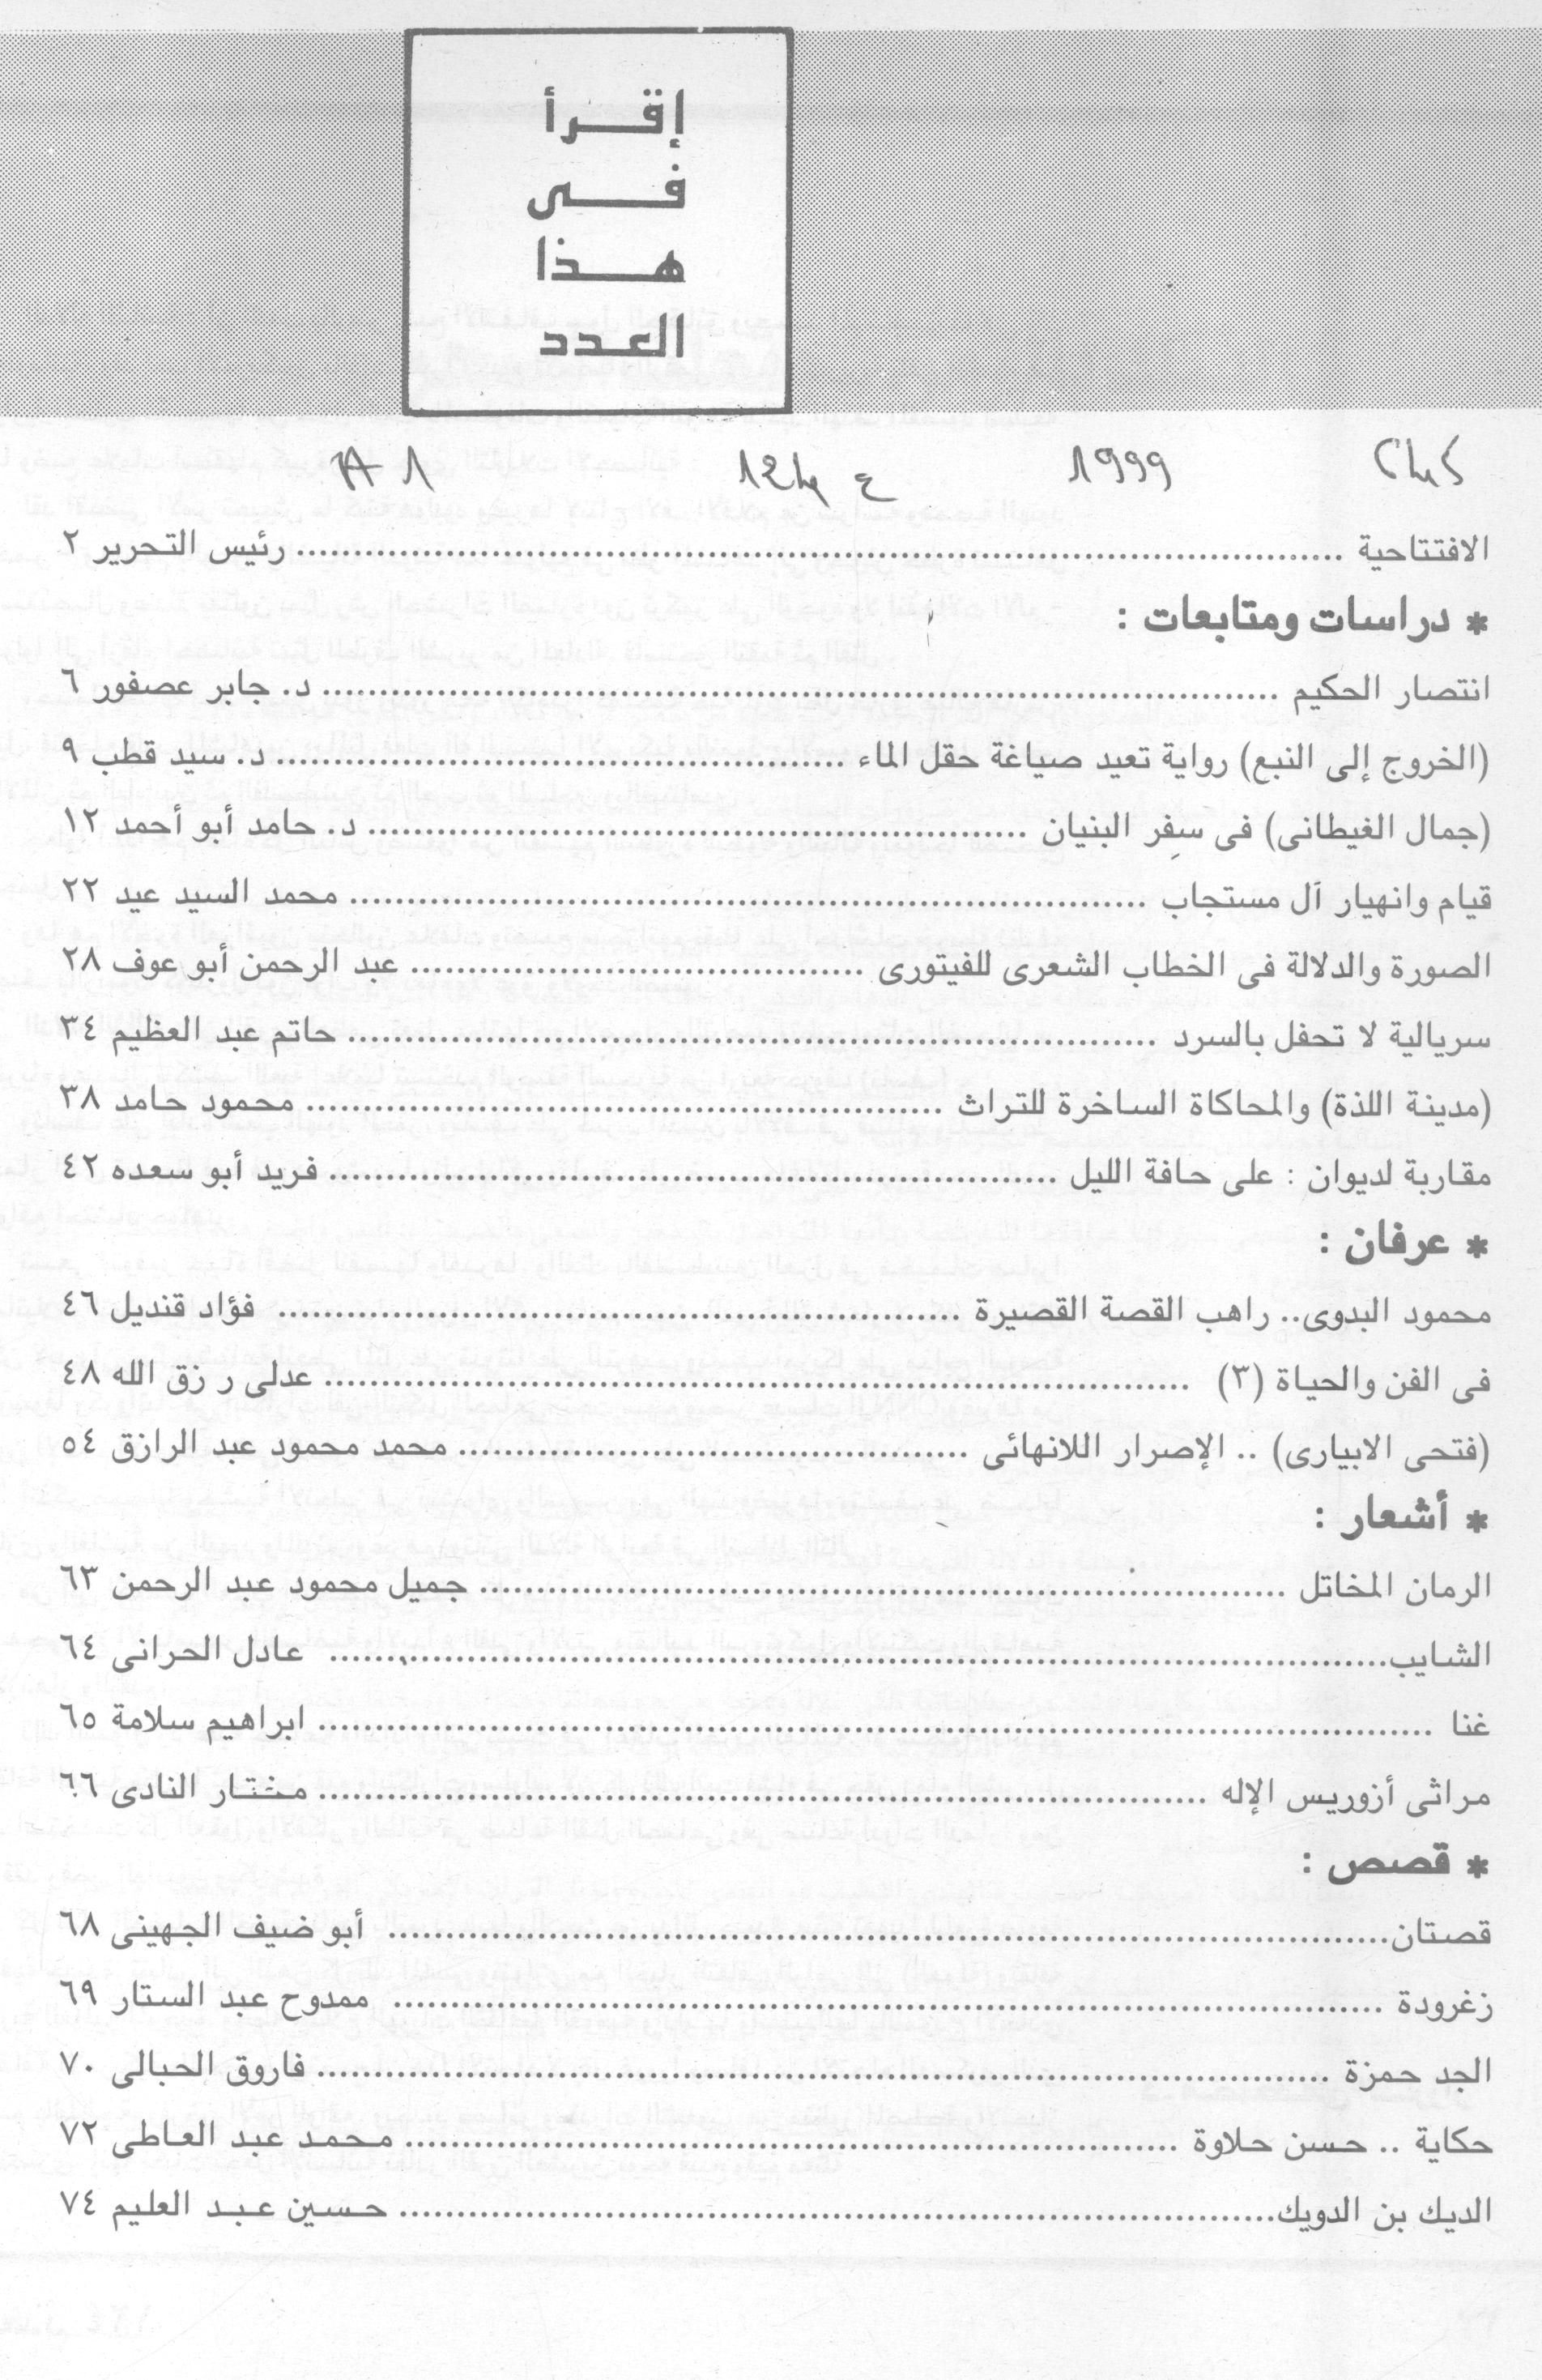 إقرأ
فى
هذا
العدد
1999
الافتتاحية ........ رئيس التحرير ٢
* دراسات ومتابعات :
انتصار الحكيم ........ د. جابر عصفور ٦
(الخروج إلى النبع) رواية تعيد صياغة حقل الماء ........ د. سيد قطب ٩
(جمال الغيطانى) فى سِفر البنيان ........ د. حامد أبو أحمد ١٢
قيام وانهيار آل مستجاب ........ محمد السيد عيد ٢٢
الصورة والدلالة فى الخطاب الشعرى للفيتورى ........ عبد الرحمن أبو عوف ٢٨
سريالية لا تحفل بالسرد ........ حاتم عبد العظيم ٣٤
(مدينة اللذة) والمحاكاة الساخرة للتراث ........ محمود حامد ٣٨
مقاربة لديوان : على حافة الليل ........ فريد أبو سعده ٤٢
* عرفان :
محمود البدوى.. راهب القصة القصيرة ........ فؤاد قنديل ٤٦
فى الفن والحياة (٣) ........ عدلى رزق الله ٤٨
(فتحى الابيارى) .. الإصرار اللانهائى ........ محمد محمود عبد الرازق ٥٤
* أشعار :
الرمان المخاتل ........ جميل محمود عبد الرحمن ٦٣
الشايب ........ عادل الحرانى ٦٤
غنا ........ ابراهيم سلامة ٦٥
مراثى أزوريس الإله ........ مختار النادى ٦٦
* قصص :
قصتان ........ أبو ضيف الجهينى ٦٨
زغرودة ........ ممدوح عبد الستار ٦٩
الجد حمزة ........ فاروق الحبالى ٧٠
حكاية .. حسن حلاوة ........ محمد عبد العاطى ٧٢
الديك بن الدويك ........ حسين عبد العليم ٧٤